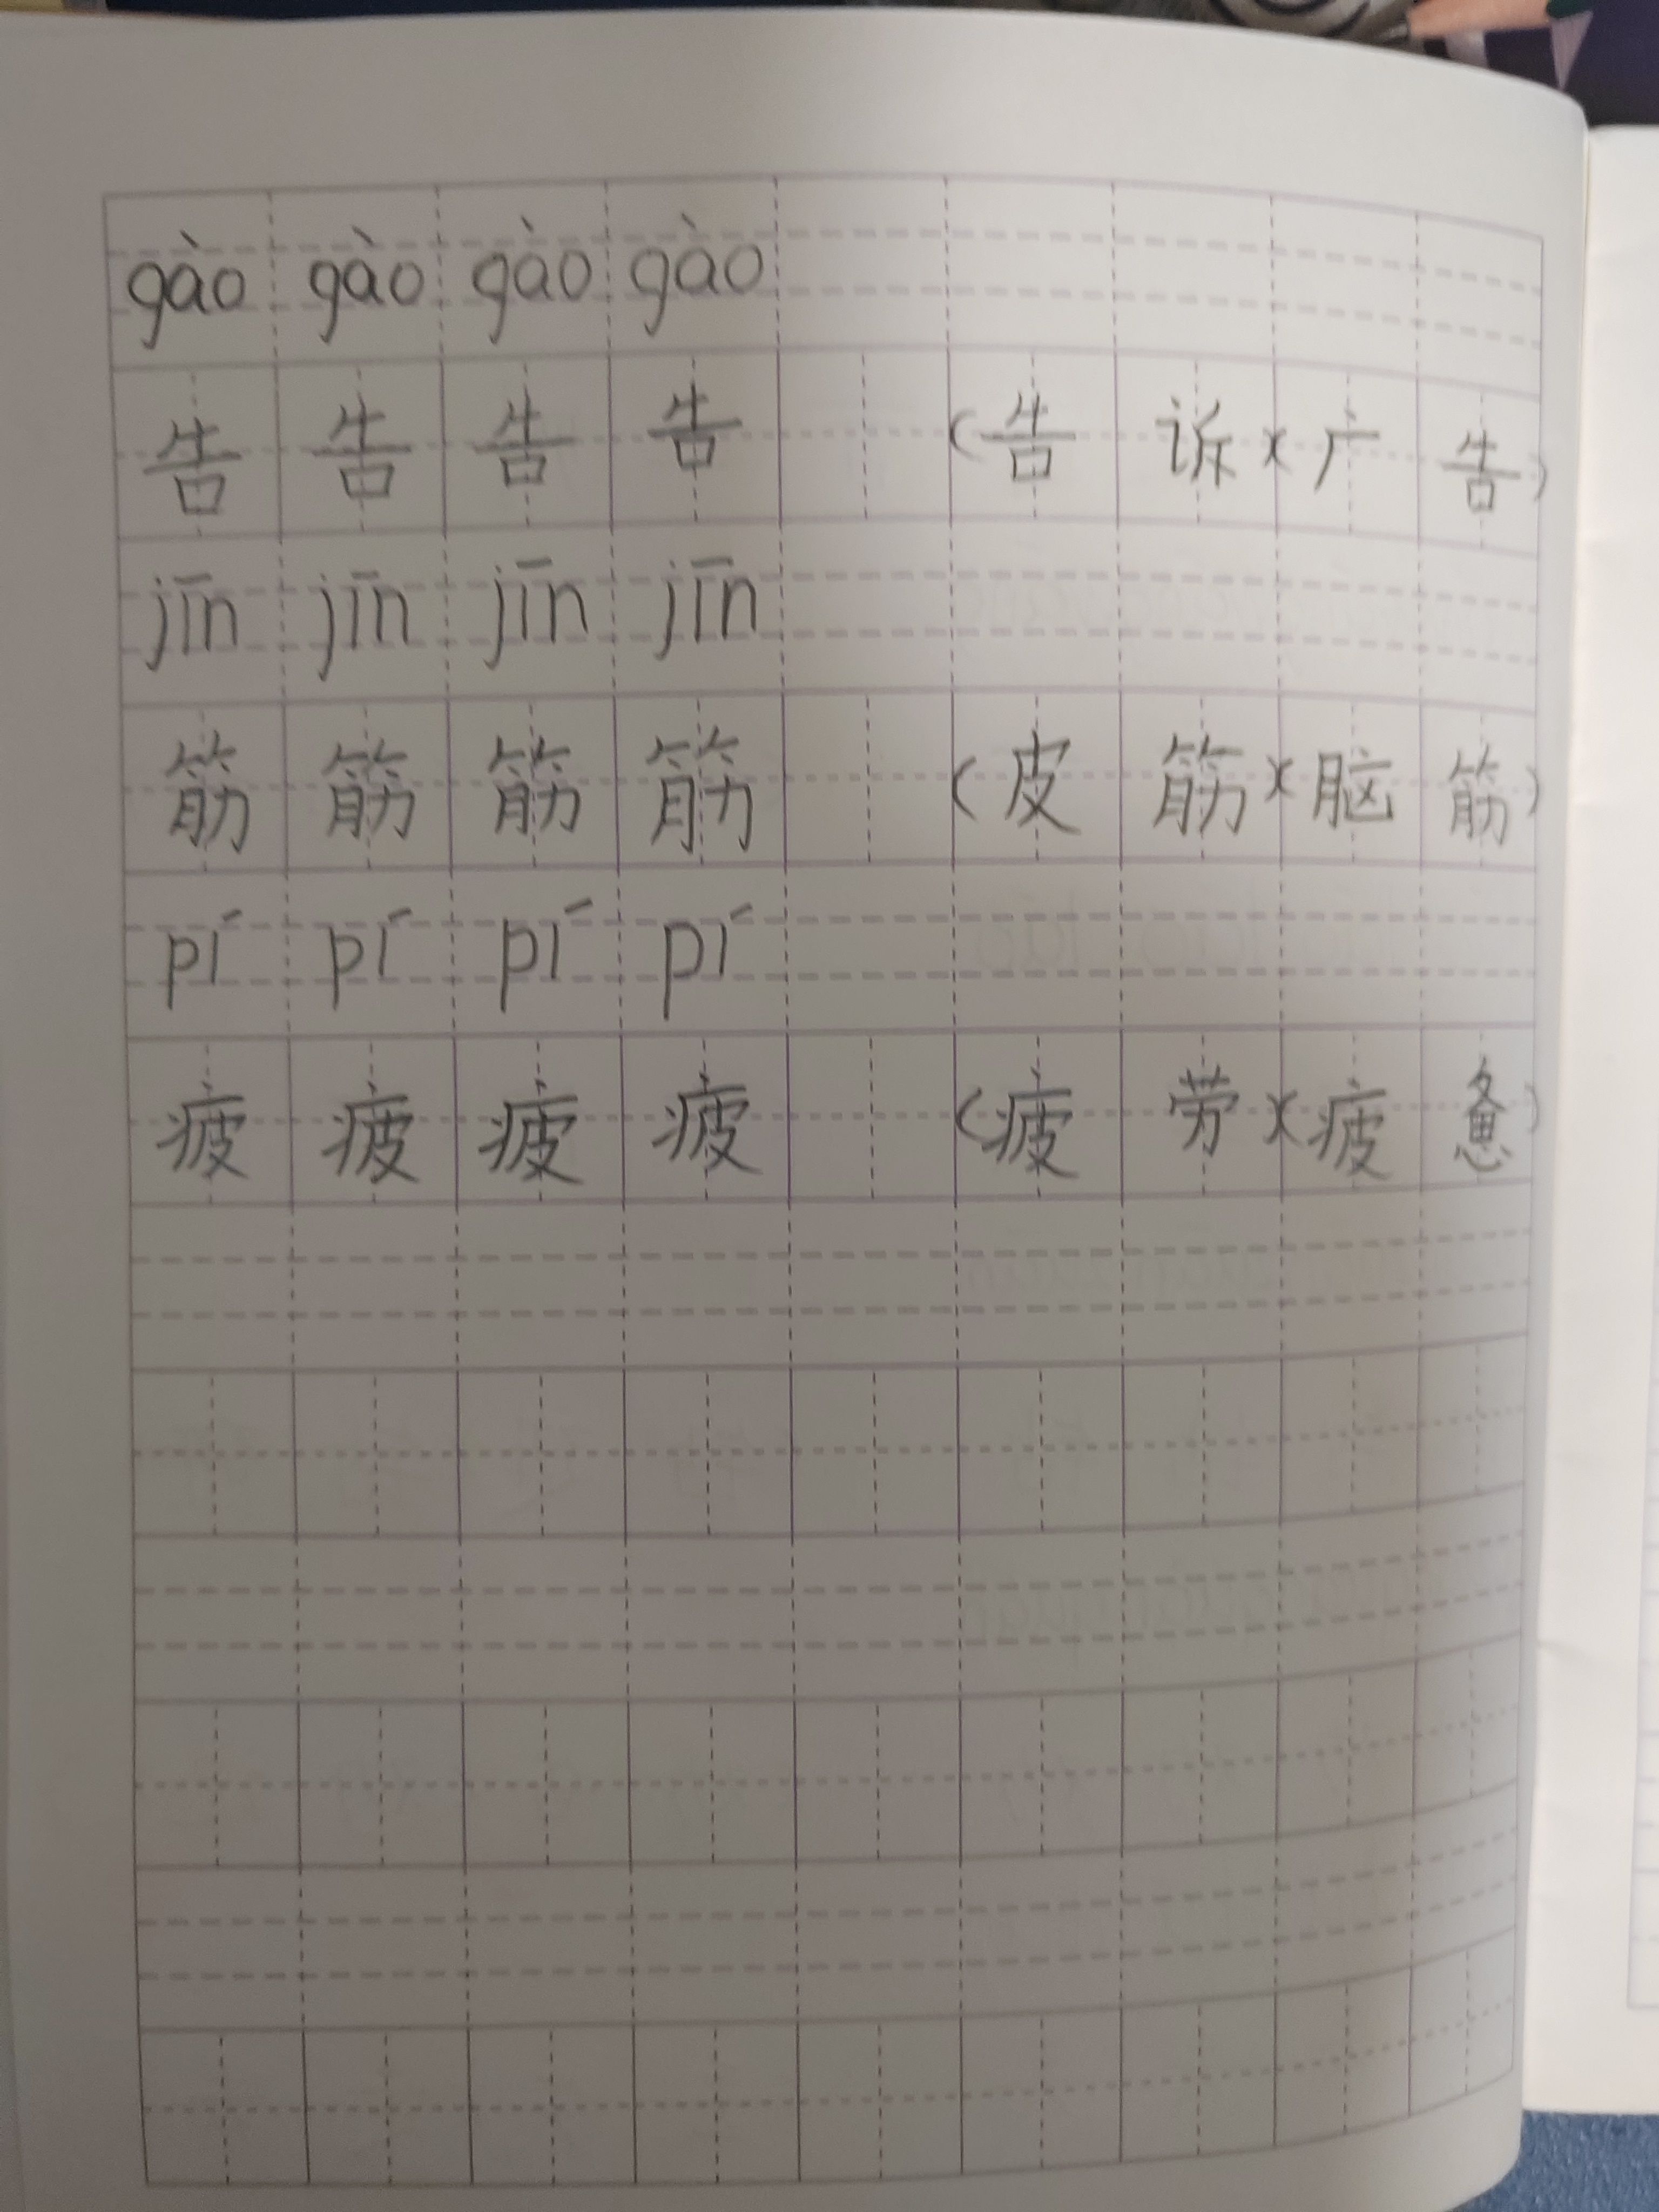 gào gào gào gào
告 告 告 告 (告 诉)(广 告)
jīn jīn jīn jīn
筋 筋 筋 筋 (皮 筋)(脑 筋)
pí pí pí pí
疲 疲 疲 疲 (疲 劳)(疲 惫)